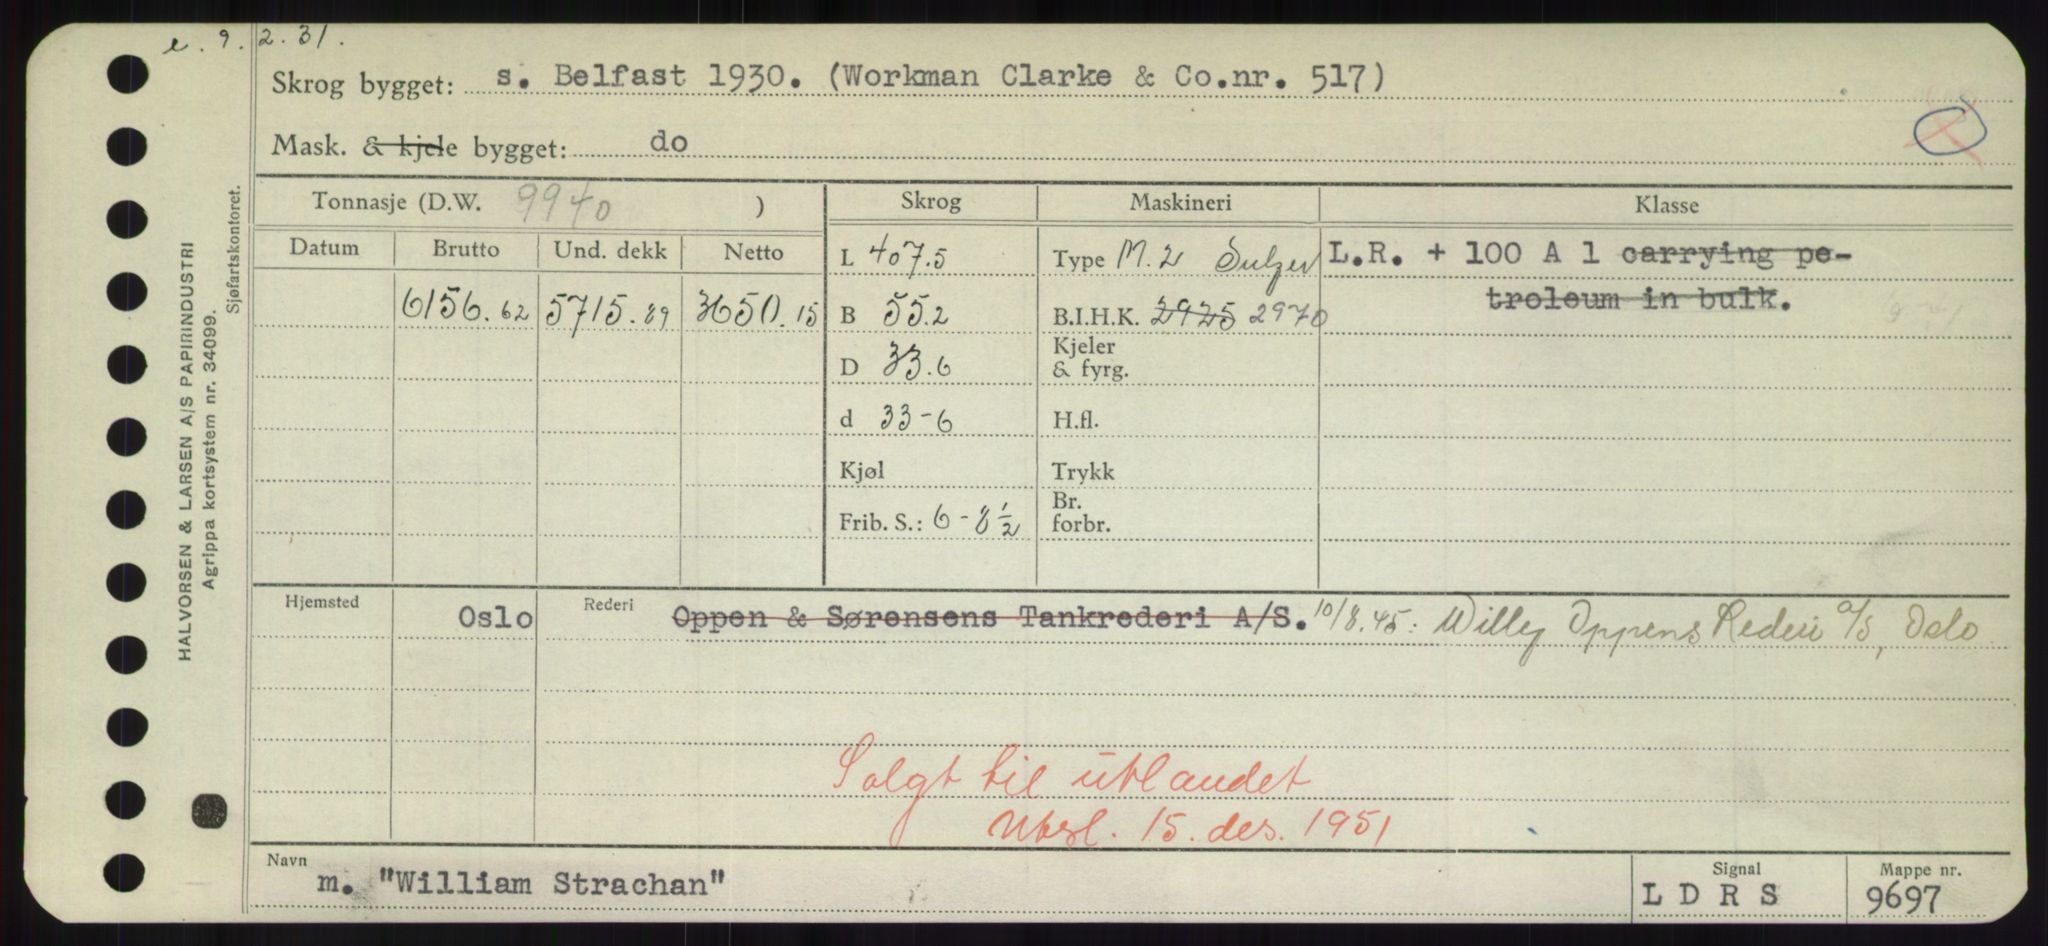 e. 9. 2. 31.
Skrog bygget: s. Belfast 1930. (Workman Clarke & Co.nr. 517)
Mask. & kjele bygget: do
Tonnasje (D.W. 9940 )
Skrog
Maskineri
Klasse
Datum
Brutto
Und. dekk
Netto
6156.62
5715.89
3650.15
L 407.5
B 55.2
D 33.6
d 33-6
Kjøl
Frib. S.: 6-8½
Type M. 2 Sulzer
B.I.H.K. 2925 2970
Kjeler
& fyrg.
H.fl.
Trykk
Br.
forbr.
L.R. + 100 A 1 carrying pe-
troleum in bulk.
Hjemsted
Oslo
Rederi
Oppen & Sørensens Tankrederi A/S. 10/8.45: Willy Oppens Rederi a/s, Oslo
Solgt til utlandet
Utsl. 15. des. 1951
Navn
m. "William Strachan"
Signal
L D R S
Mappe nr.
9697
HALVORSEN & LARSEN A/S PAPIRINDUSTRI
Agrippa kortsystem nr. 34099.
Sjøfartskontoret.